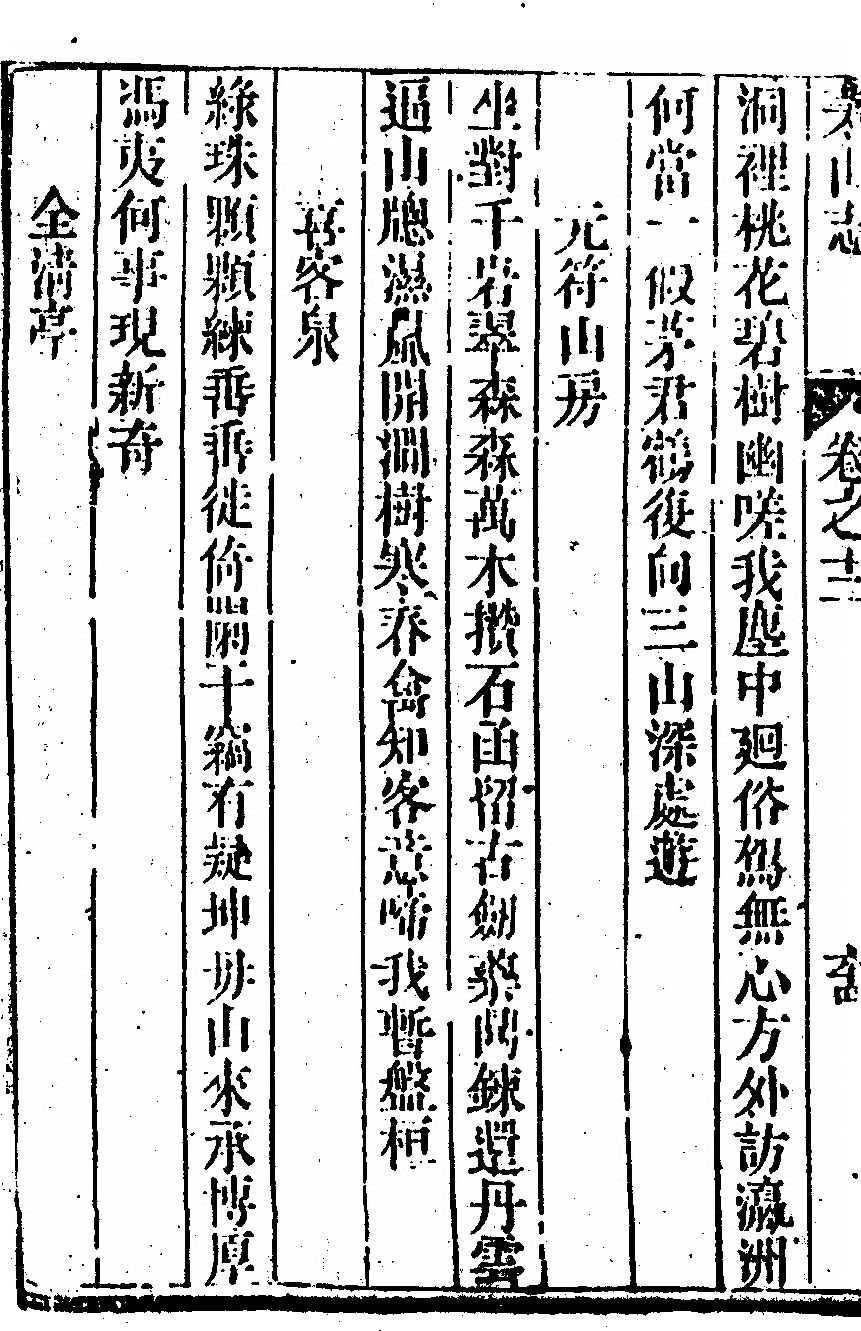 山志 卷之十二
洞裡桃花碧樹幽嗟我塵中廻俗駕無心方外訪瀛洲
何當一假茅君鶴復向三山深處遊
元符山房
坐對千岩翠森森萬木攢石函留古劒藥鬲鍊還丹雲
逼山牕濕風開澗樹寒春禽知客意啼我暫盤桓
喜客泉
綠珠顆顆練垂垂徙倚闌干竊有疑坤毋由來承博厚
馮夷何事現新奇
全清亭